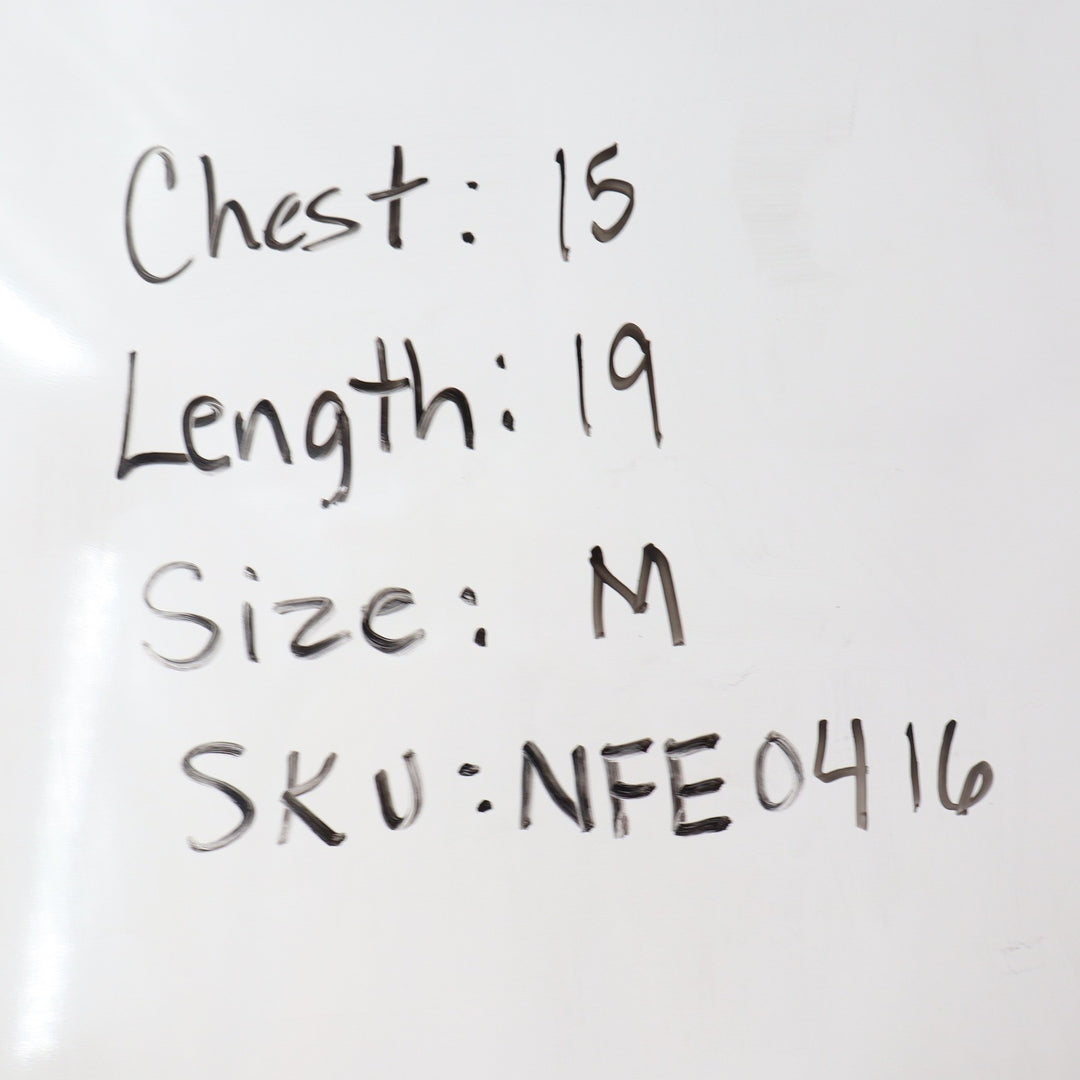 Chest: 15
Length: 19
Size: M
SKU: NFE0416